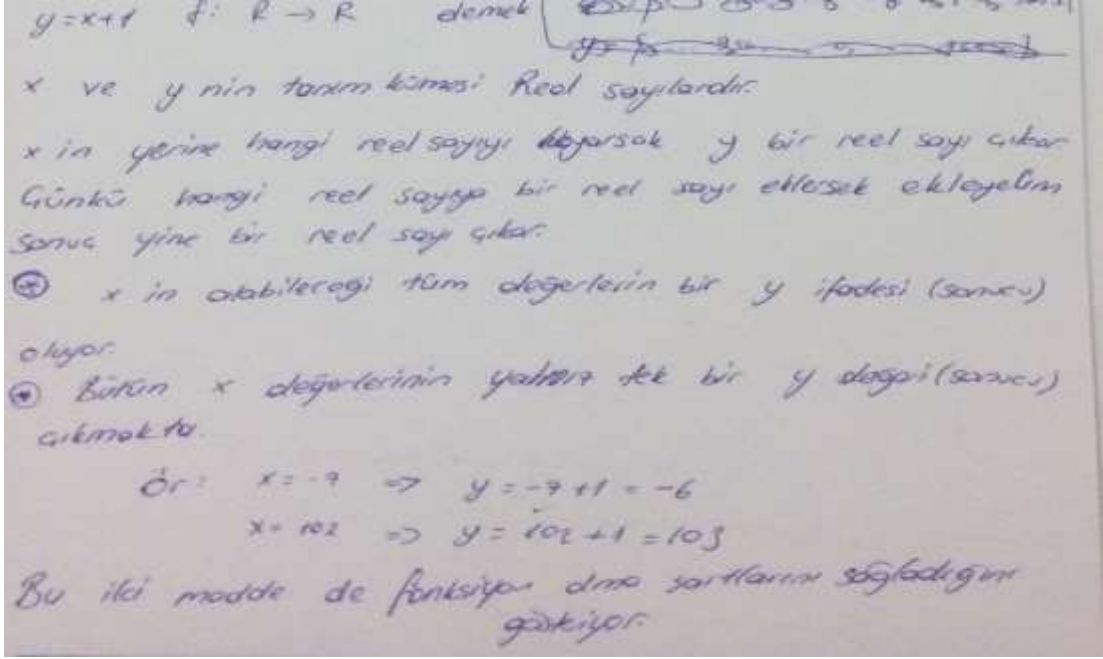 y=x+1 f: R → R demek
x ve y nin tanım kümesi Reel sayılardır.
x in yerine hangi reel sayıyı koyarsak y bir reel sayı çıkar
Günkü hangi reel sayıya bir reel sayı eklersek ekleyelim
sonuç yine bir reel sayı çıkar.
* x in alabileceği tüm değerlerin bir y ifadesi (sonucu)
oluyor.
* Bütün x değerlerinin yalnız tek bir y değeri (sonucu)
çıkmakta.
Ör: x = -7 => y = -7+1 = -6
x = 102 => y = 102+1 = 103
Bu iki madde de fonksiyon olma şartlarını sağladığını
gösteriyor.